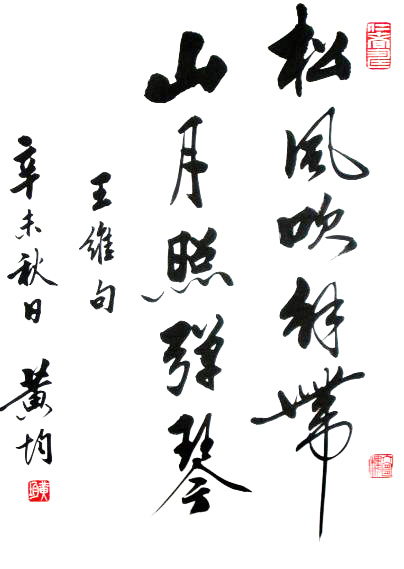 松風吹解帶
山月照彈琴
王維句
辛未秋日
黄均